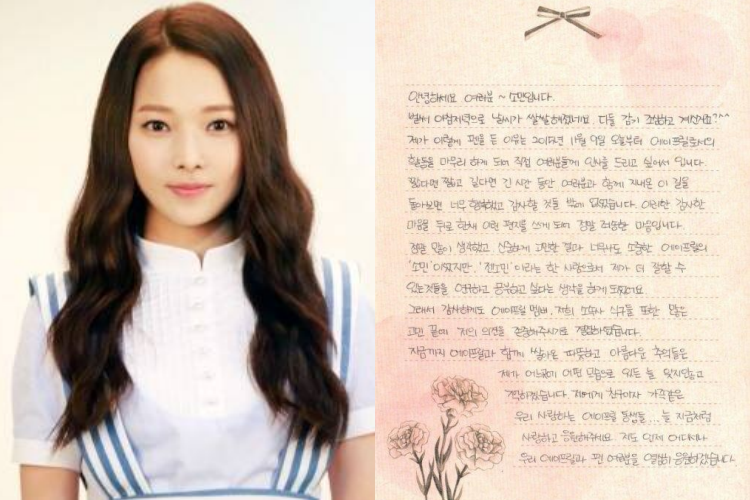 안녕하세요 여러분 ~ 소민입니다.
벌써 아침저녁으로 날씨가 쌀쌀해졌네요. 다들 감기 조심하고 계신가요?^^
제가 이렇게 펜을 든 이유는 2015년 11월 9일 오늘부터 에이프릴로서의
활동을 마무리 하게 되어 직접 여러분들께 인사를 드리고 싶어서 입니다.
짧다면 짧고 길다면 긴 시간 동안 여러분과 함께 지내온 이 길을
돌아보면 너무 행복했고 감사할 것들 밖에 없었습니다. 이러한 감사한
마음을 뒤로 한채 이런 편지를 쓰게 되어 정말 죄송한 마음입니다.
정말 많이 생각했고 신중하게 고민한 결과 너무나도 소중한 에이프릴의
'소민'이었지만, '전소민'이라는 한 사람으로써 제가 더 잘할 수
있는것들을 연구하고 공부하고 싶다는 생각을 하게 되었어요
그래서 감사하게도 에이프릴 멤버, 저희 소속사 식구들 포함 많은
고민 끝에 저의 의견을 존중해주시기로 결정하였습니다.
지금까지 에이프릴과 함께 쌓아온 따뜻하고 아름다운 추억들은
제가 어느곳에 어떤 모습으로 있든 늘 잊지않고
기억하겠습니다. 저에게 친구이자 가족같은
우리 사랑하는 에이프릴 동생들... 늘 지금처럼
사랑하고 응원해주세요. 저도 언제 어디서나
우리 에이프릴과 팬 여러분을 열심히 응원하겠습니다.